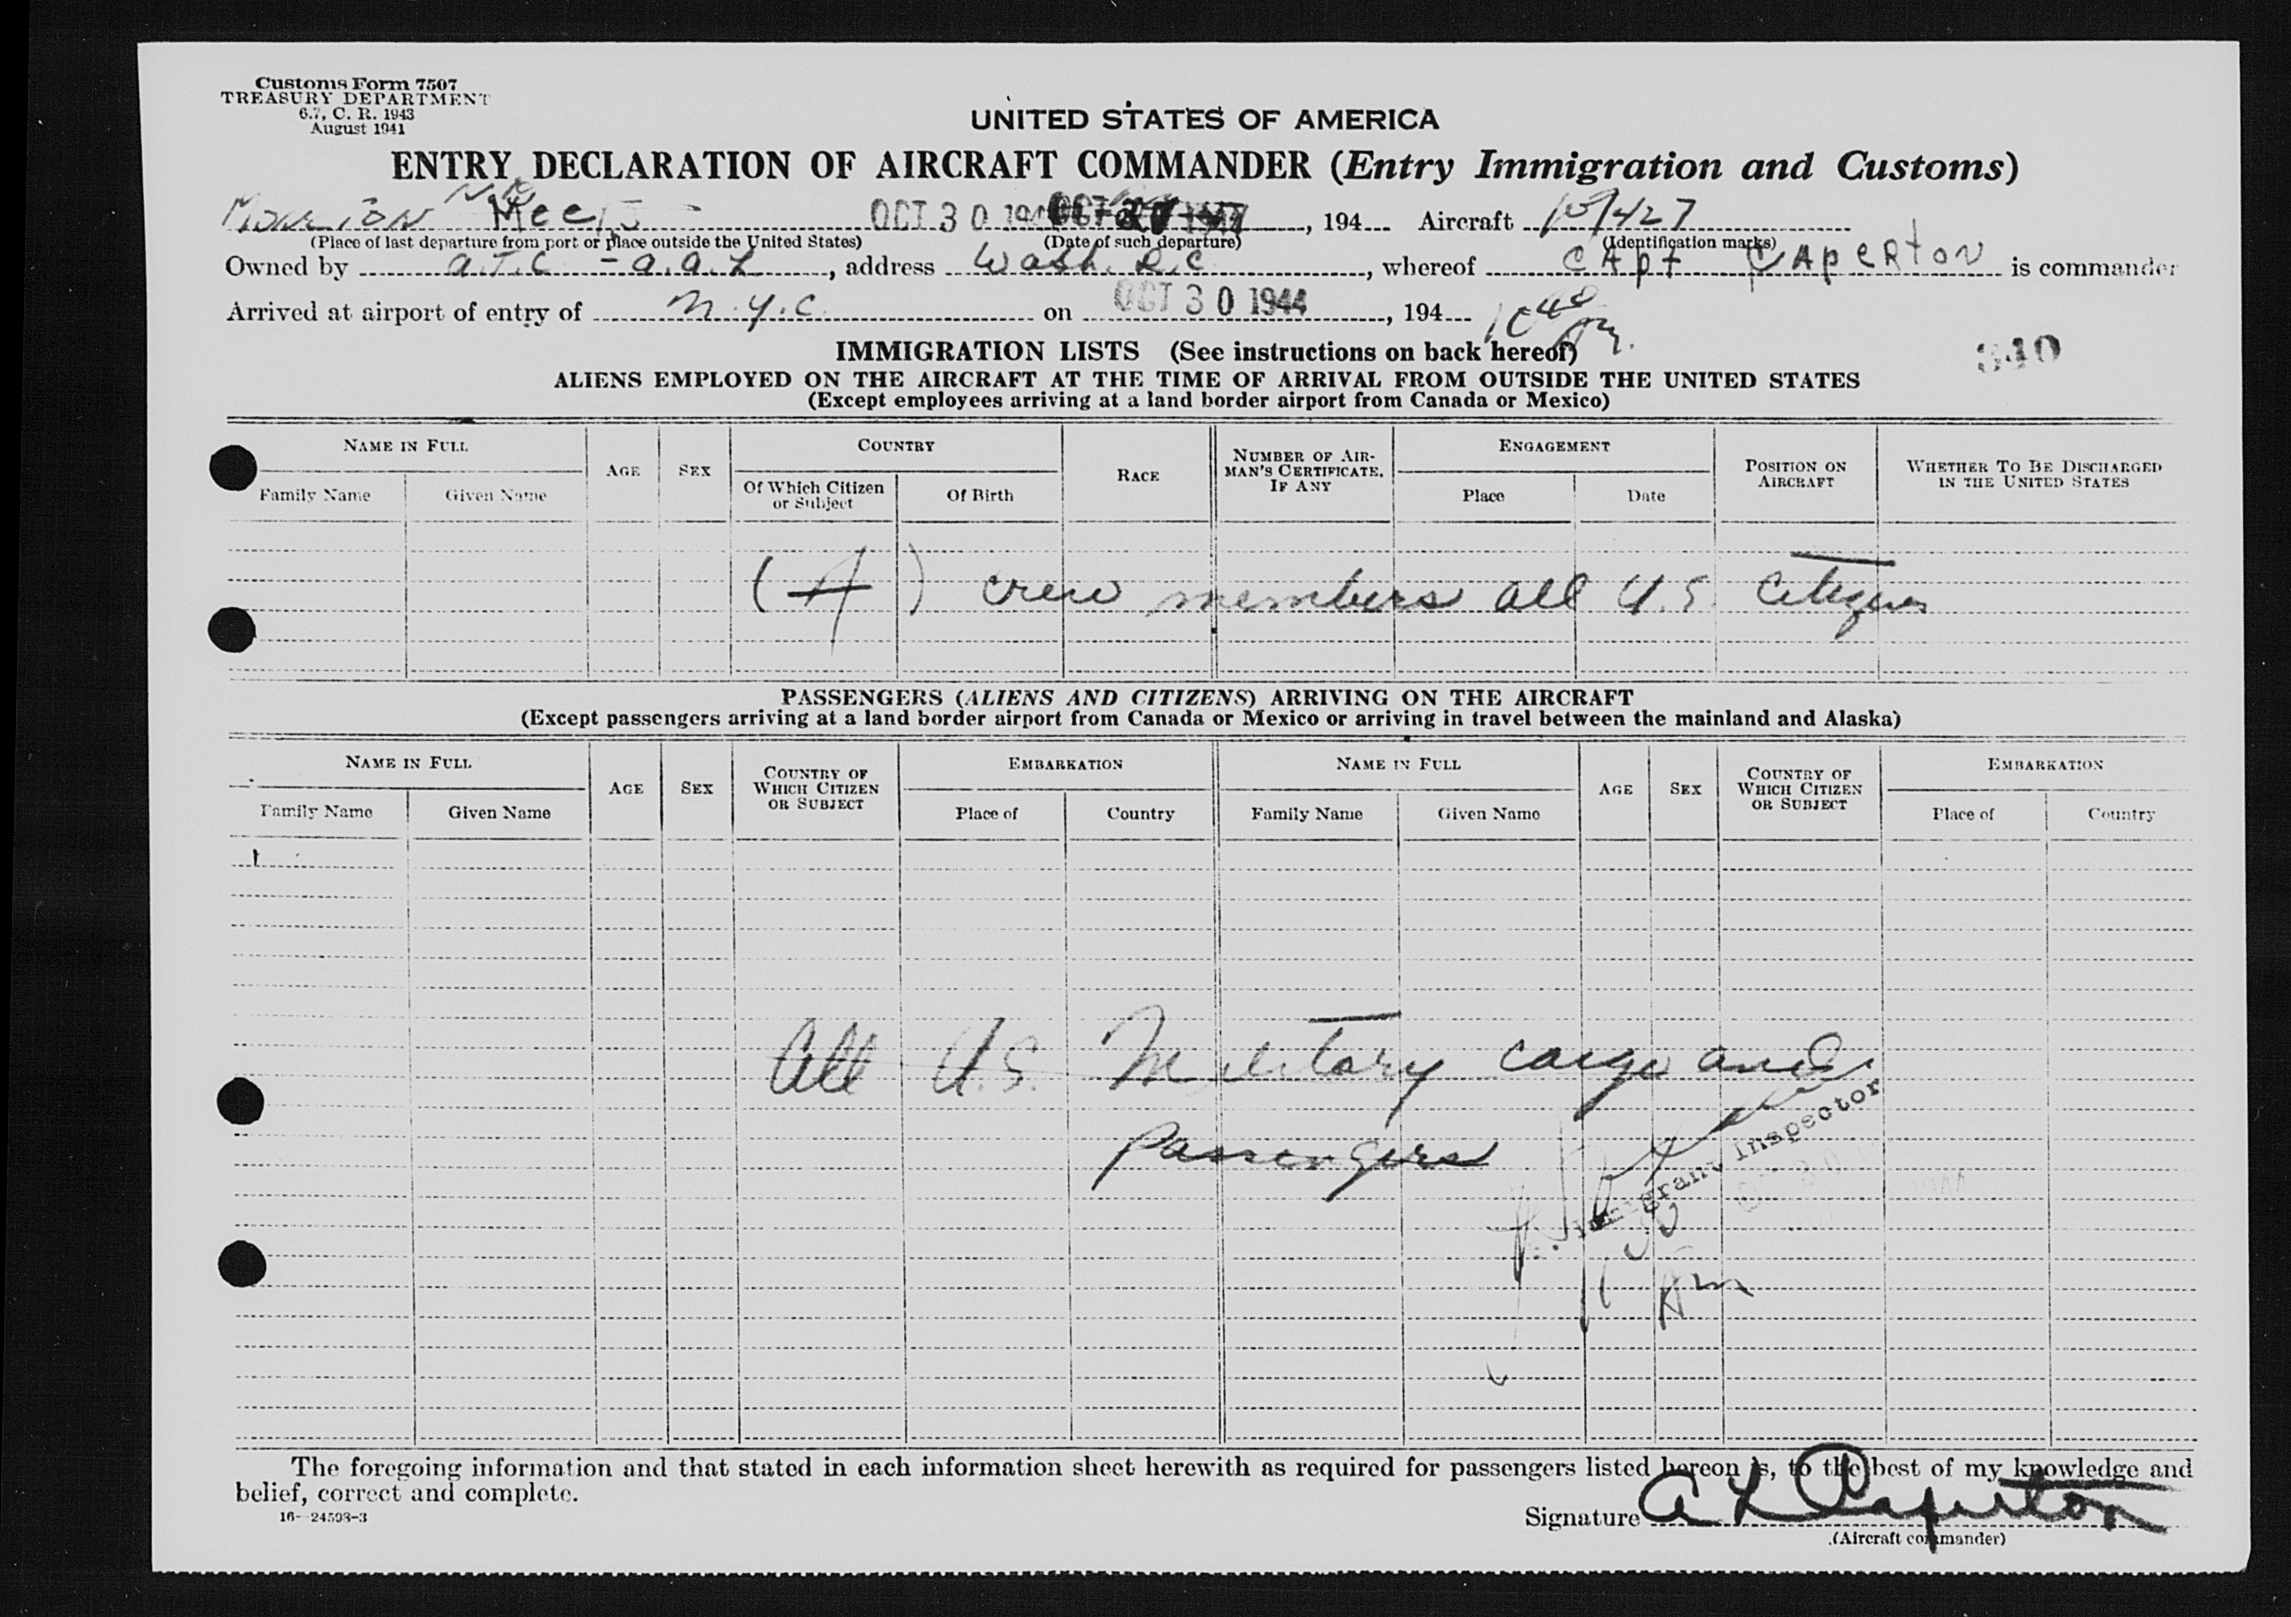 Customs Form 7507
TREASURY DEPARTMENT
6.7, C. R. 1943
August 1941
UNITED STATES OF AMERICA
ENTRY DECLARATION OF AIRCRAFT COMMANDER (Entry Immigration and Customs)
OCT 30 194 , 194 Aircraft
(Place of last departure from port or place outside the United States) (Date of such departure) (Identification marks)
Owned by A.T.C. - A.A.L , address Wash. D.C , whereof CApt CApeRtoN is commander
Arrived at airport of entry of N.Y.C. on OCT 30 1944, 194
340
IMMIGRATION LISTS (See instructions on back hereof)
ALIENS EMPLOYED ON THE AIRCRAFT AT THE TIME OF ARRIVAL FROM OUTSIDE THE UNITED STATES
(Except employees arriving at a land border airport from Canada or Mexico)
NAME IN FULL
Family Name Given Name
AGE
SEX
COUNTRY
Of Which Citizen or Subject
Of Birth
RACE
NUMBER OF AIR-
MAN'S CERTIFICATE,
IF ANY
ENGAGEMENT
Place Date
POSITION ON
AIRCRAFT
WHETHER TO BE DISCHARGED
IN THE UNITED STATES
crew members all U.S. Citizens
PASSENGERS (ALIENS AND CITIZENS) ARRIVING ON THE AIRCRAFT
(Except passengers arriving at a land border airport from Canada or Mexico or arriving in travel between the mainland and Alaska)
NAME IN FULL
Family Name Given Name
AGE
SEX
COUNTRY OF
WHICH CITIZEN
OR SUBJECT
EMBARKATION
Place of Country
NAME IN FULL
Family Name Given Name
AGE
SEX
COUNTRY OF
WHICH CITIZEN
OR SUBJECT
EMBARKATION
Place of Country
All U.S. Military cargo and
passengers
Immigrant Inspector
Am
The foregoing information and that stated in each information sheet herewith as required for passengers listed hereon is, to the best of my knowledge and
belief, correct and complete.
16—24598-3
Signature A L Caperton
(Aircraft commander)